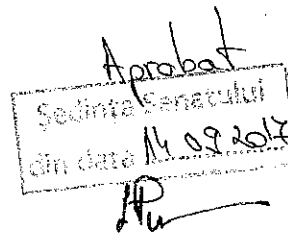 Aprobat
Ședința Senatului
din data 14 09 2017